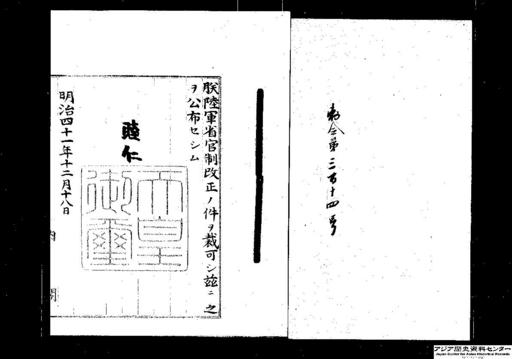 勅令第三百十四号
朕陸軍省官制改正ノ件ヲ裁可シ茲ニ之
ヲ公布セシム
睦仁
天皇
御璽
明治四十一年十二月十八日
内閣
アジア歴史資料センター
Japan Center for Asian Historical Records